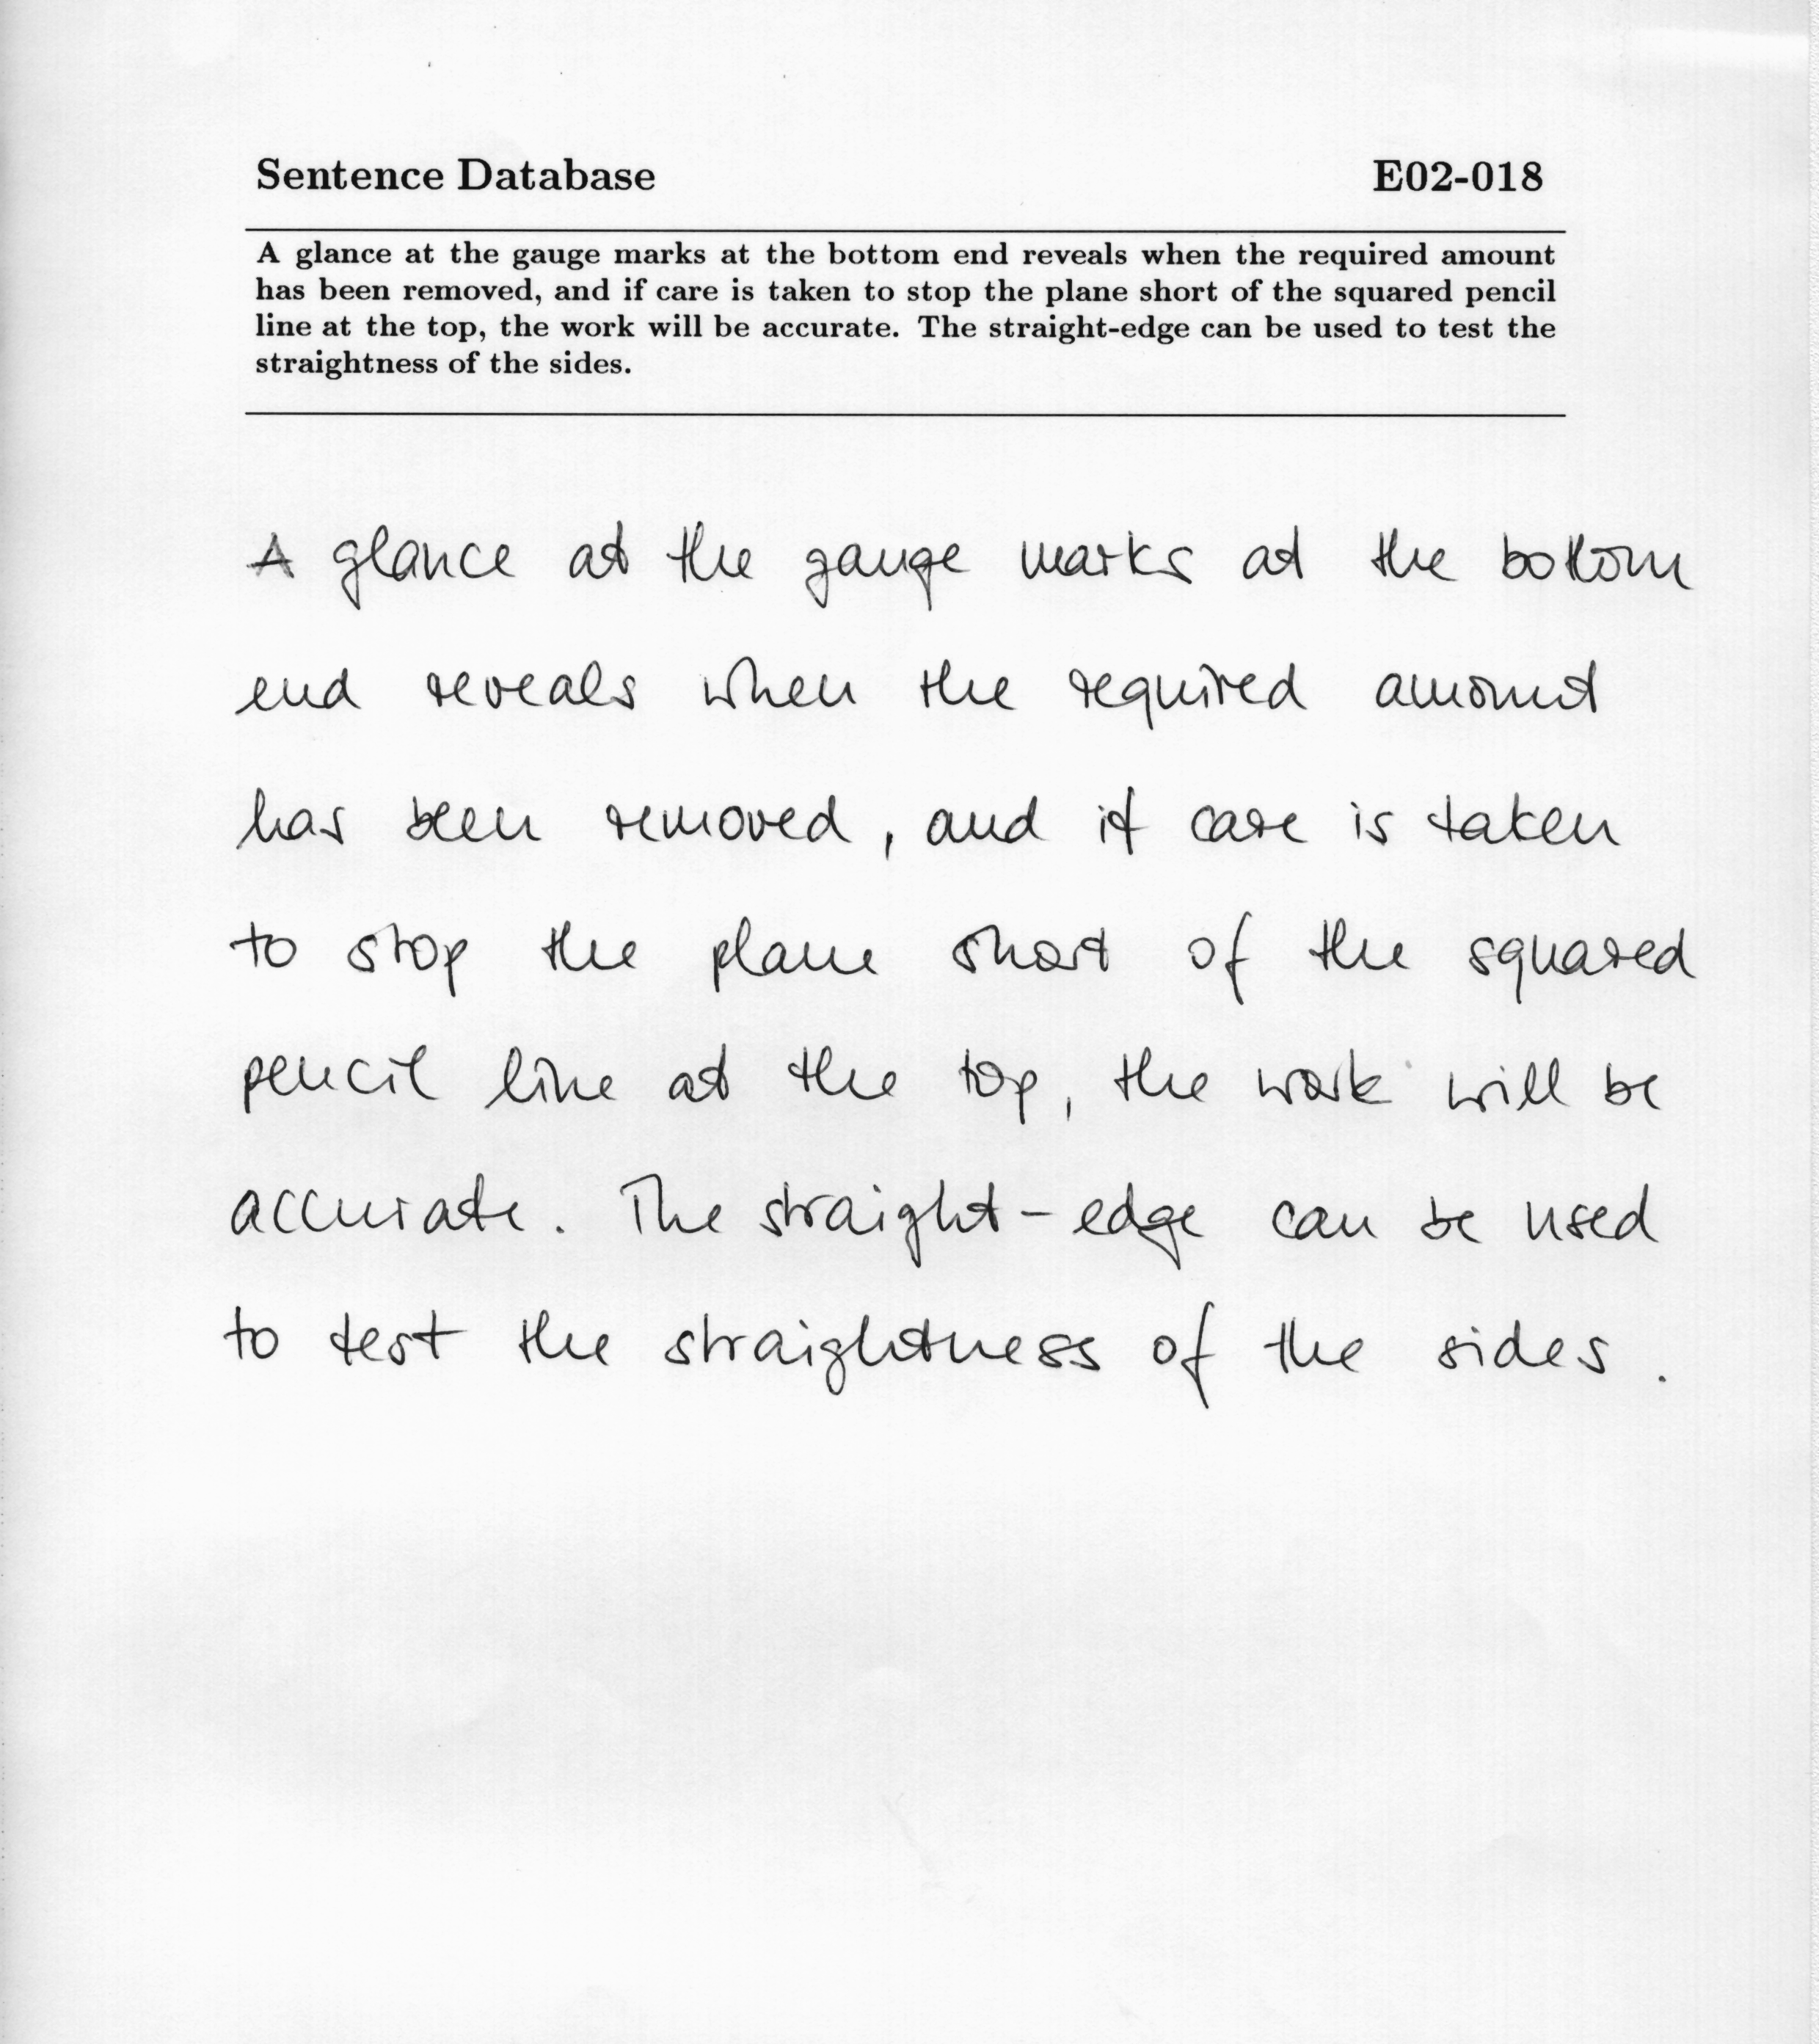 Sentence Database E02-018
A glance at the gauge marks at the bottom end reveals when the required amount
has been removed, and if care is taken to stop the plane short of the squared pencil
line at the top, the work will be accurate. The straight-edge can be used to test the
straightness of the sides.
A glance at the gauge marks at the bottom
end reveals when the required amount
has been removed, and if care is taken
to stop the plane short of the squared
pencil line at the top, the work will be
accurate. The straight-edge can be used
to test the straightness of the sides.